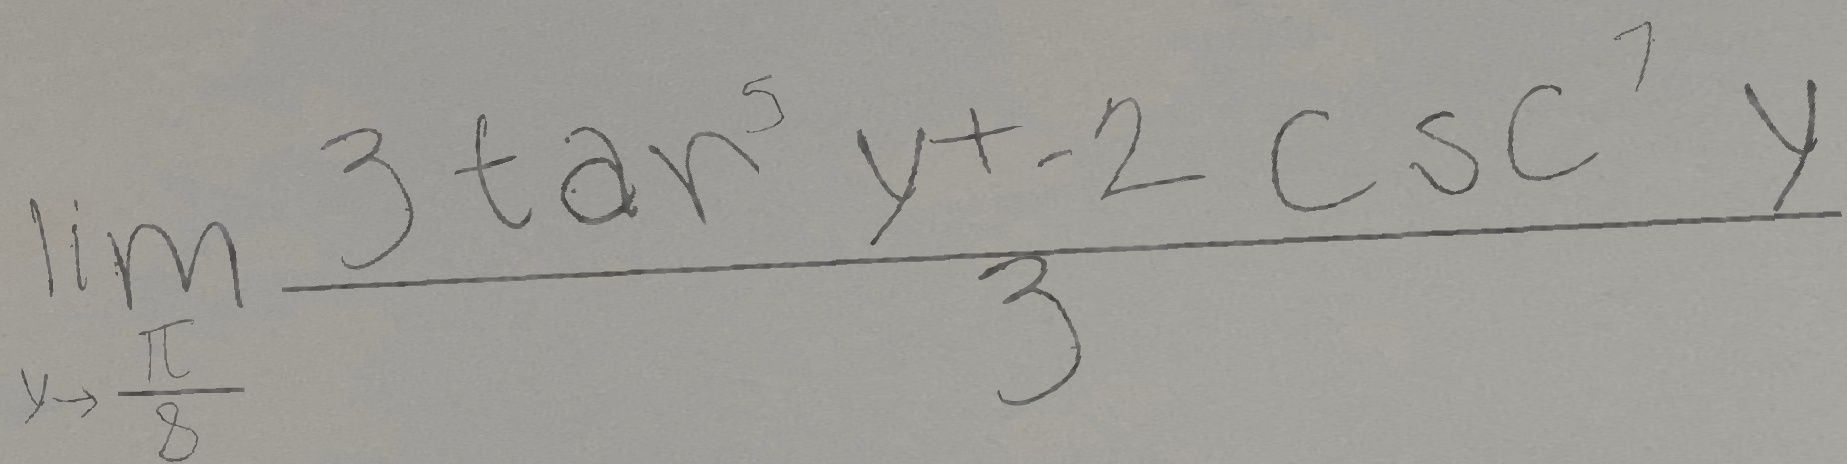 lim_{y→\frac{π}{8}} \frac{3 tan^5 y + -2 csc^7 y}{3}